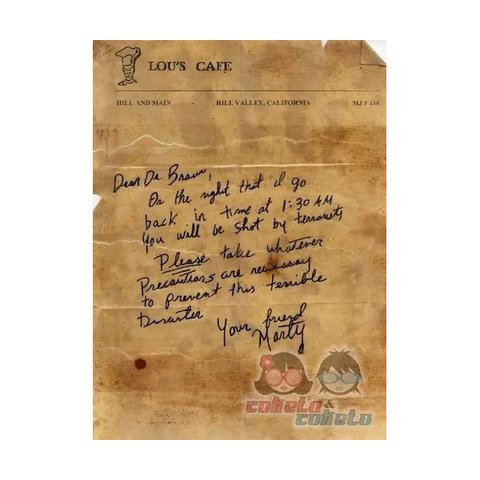 LOU'S CAFE
HILL AND MAIN - HILL VALLEY, CALIFORNIA MJ 5 438
Dear Dr. Brown,
On the night that I go
back in time at 1:30 AM
You will be shot by terrorists
Please take whatever
Precautions are necessary
to prevent this terrible
Disaster
Your friend
Marty
coketa &
coketo